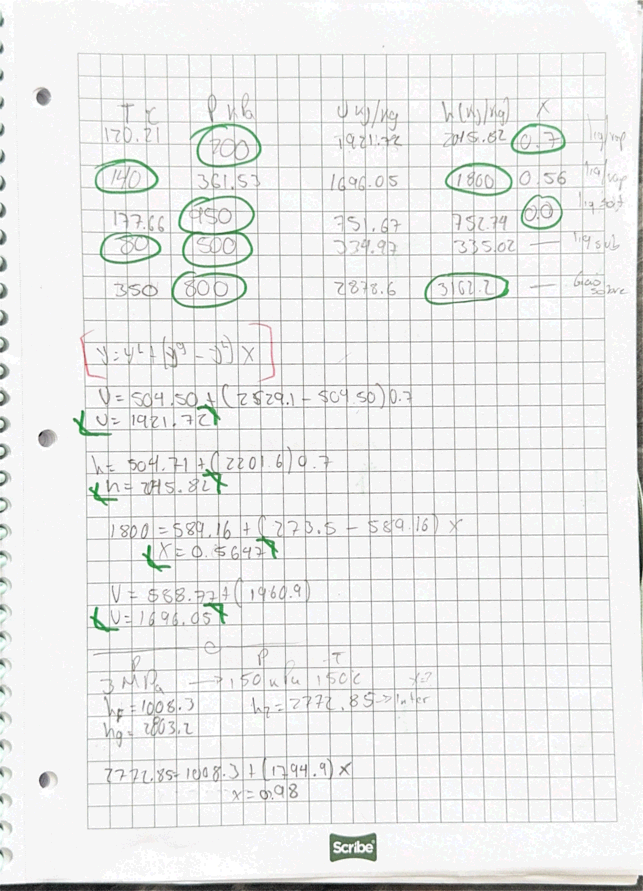 T °C P kPa U kJ/kg h (kJ/kg) X
120.21 200 1921.72 2045.82 0.7 liq/vap
140 361.53 1696.05 1800 0.56 liq/vap
177.66 950 751.67 752.74 0.0 liq sat
80 500 334.97 335.02 — liq sub
350 800 2878.6 3162.2 —
y = yᴸ + (yᵍ - yᴸ) X
U = 504.50 + (2529.1 - 504.50) 0.7
U = 1921.72
h = 504.71 + (2201.6) 0.7
h = 2045.82
1800 = 589.16 + (273.5 - 589.16) X
X = 0.5647
U = 588.77 + (1960.9)
U = 1696.05
P P T
3 MPa → 150 kPa 150°C x=?
hf = 1008.3 h2 = 2772.85 → Inter
hg = 2803.2
2772.85 = 1008.3 + (1794.9) X
x = 0.98
Scribe